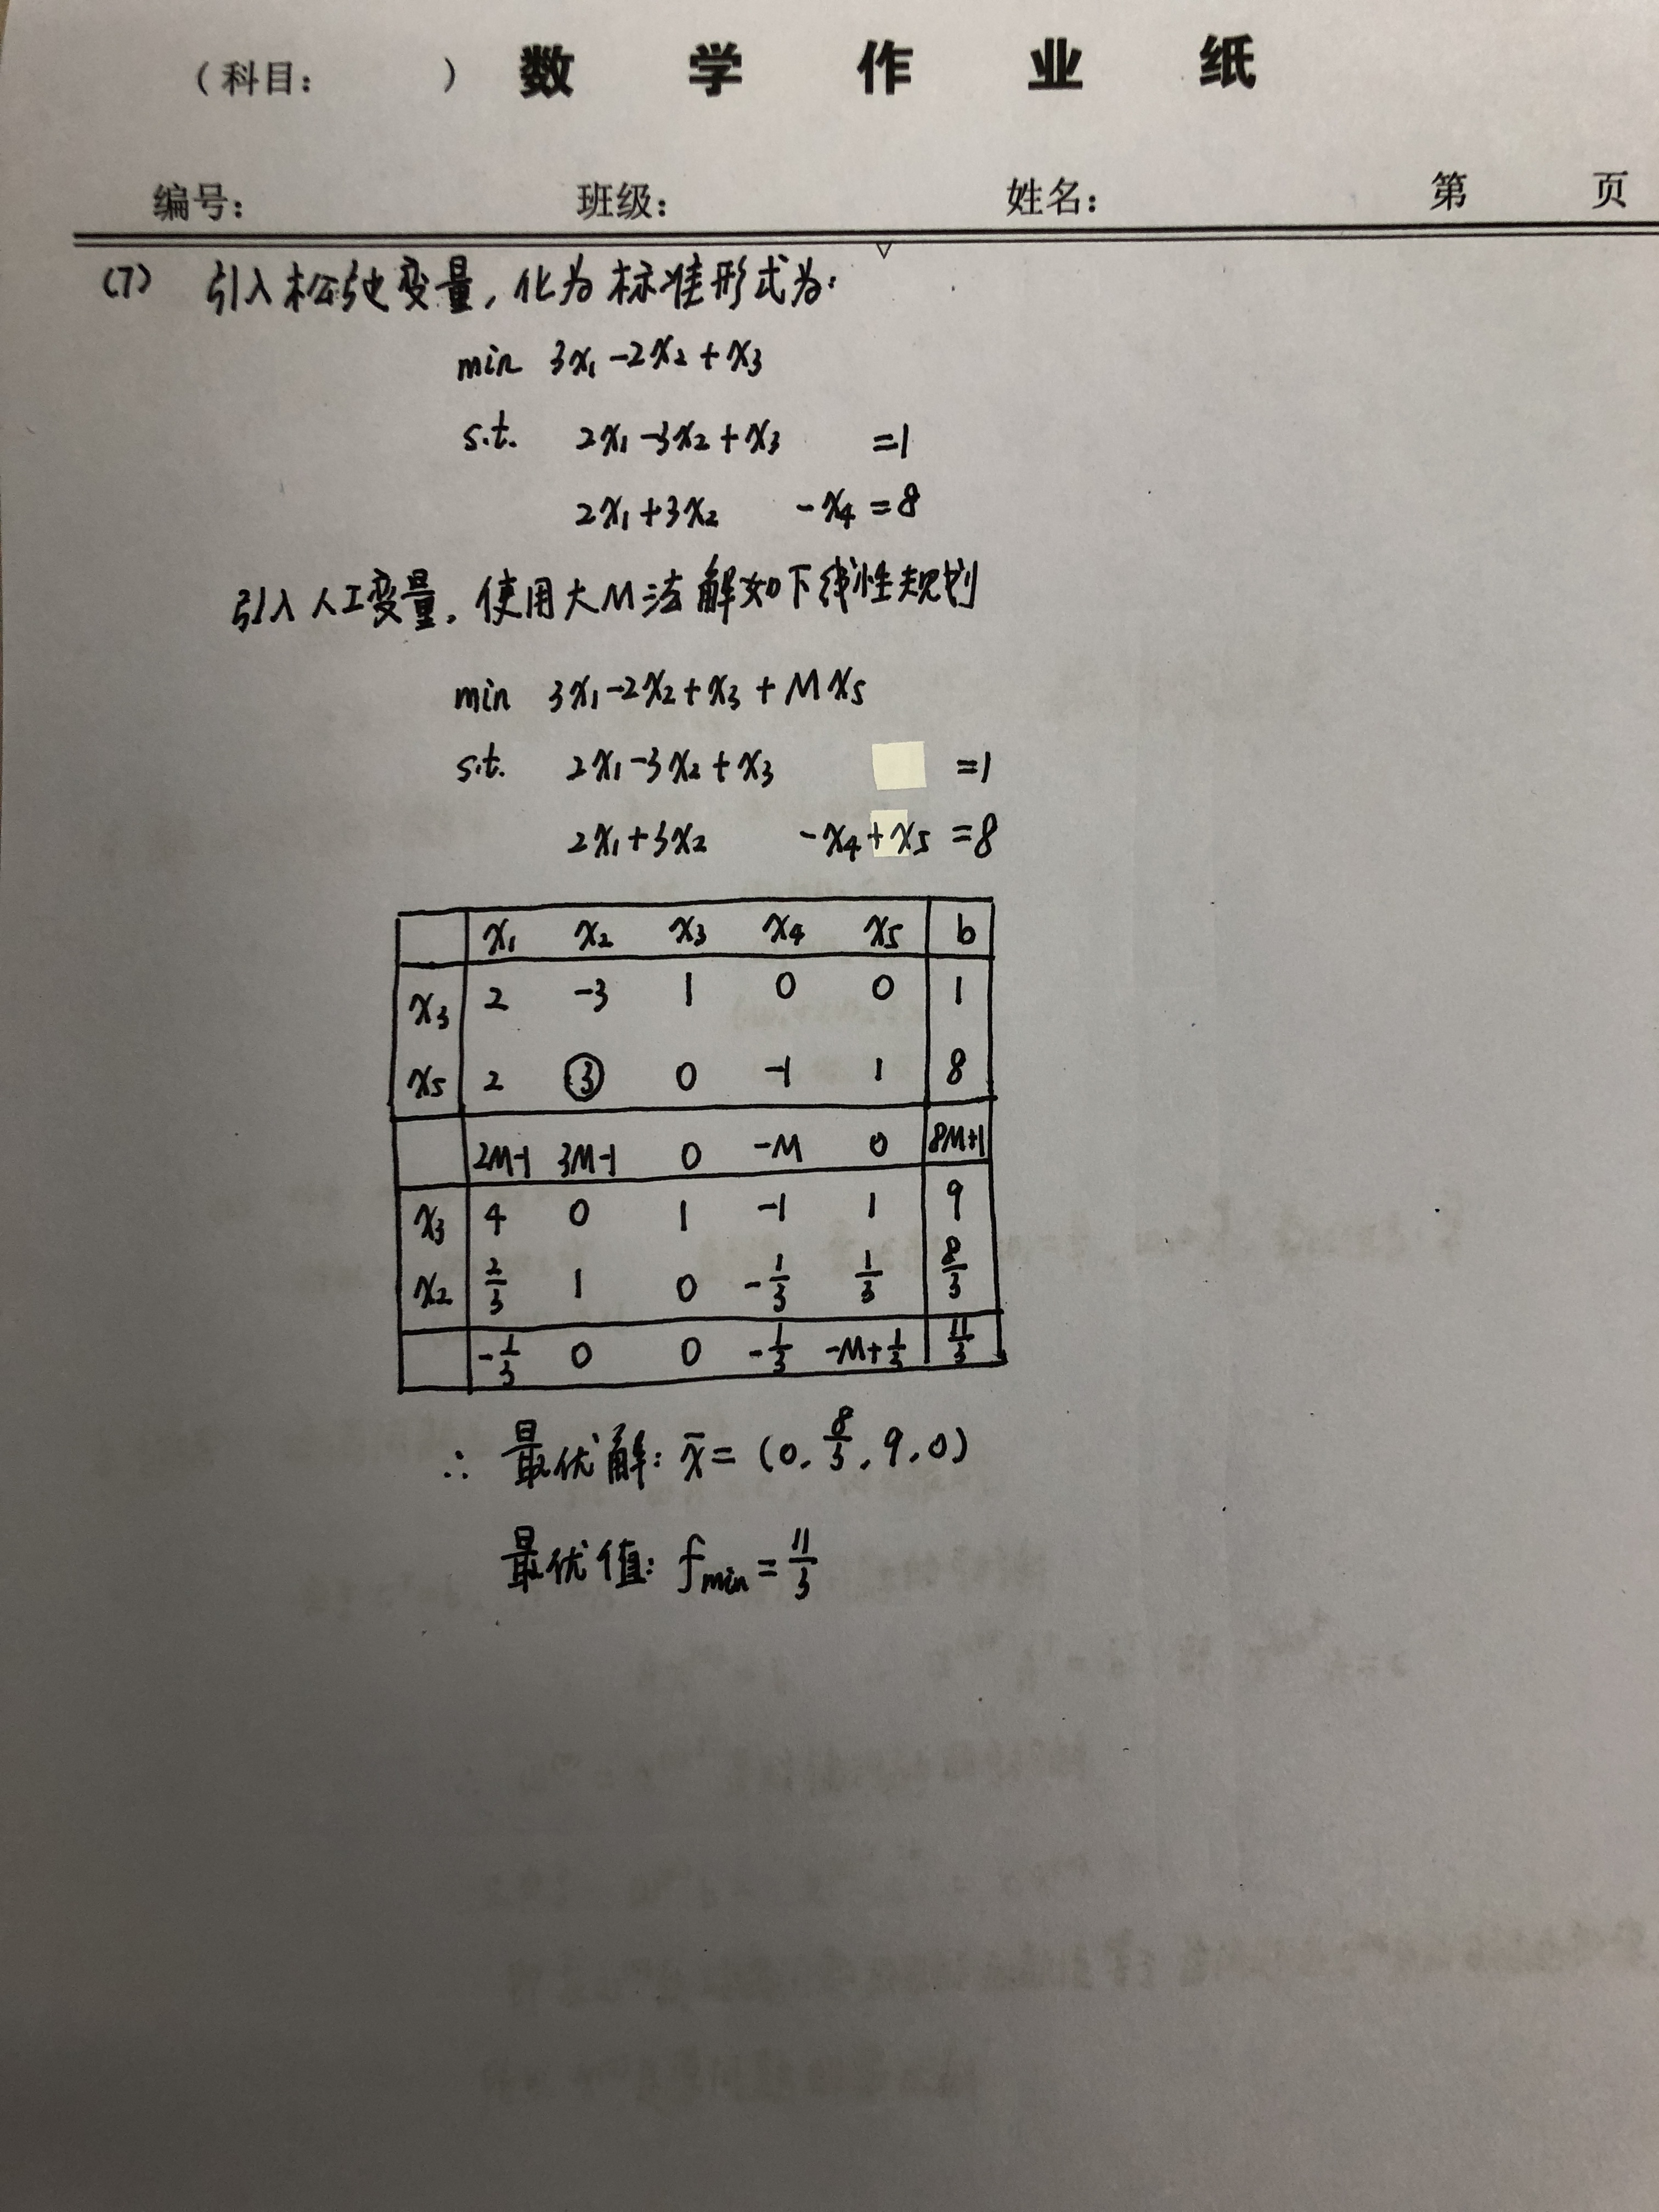 （科目：　　　）数学作业纸
编号：　　　班级：　　　姓名：　　　第　　页
(7) 引入松弛变量，化为标准形式为：
min 3x₁-2x₂+x₃
s.t. 2x₁-3x₂+x₃ =1
2x₁+3x₂ -x₄=8
引入人工变量，使用大M法解如下线性规划
min 3x₁-2x₂+x₃+Mx₅
s.t. 2x₁-3x₂+x₃ =1
2x₁+3x₂ -x₄+x₅=8
x₁ x₂ x₃ x₄ x₅ b
x₃ 2 -3 1 0 0 1
x₅ 2 3 0 -1 1 8
2M-1 3M-1 0 -M 0 8M+1
x₃ 4 0 1 -1 1 9
x₂ 2/3 1 0 -1/3 1/3 8/3
-1/3 0 0 -1/3 -M+1/3 11/3
∴ 最优解：x̄=(0,8/3,9,0)
最优值：fmin=11/3